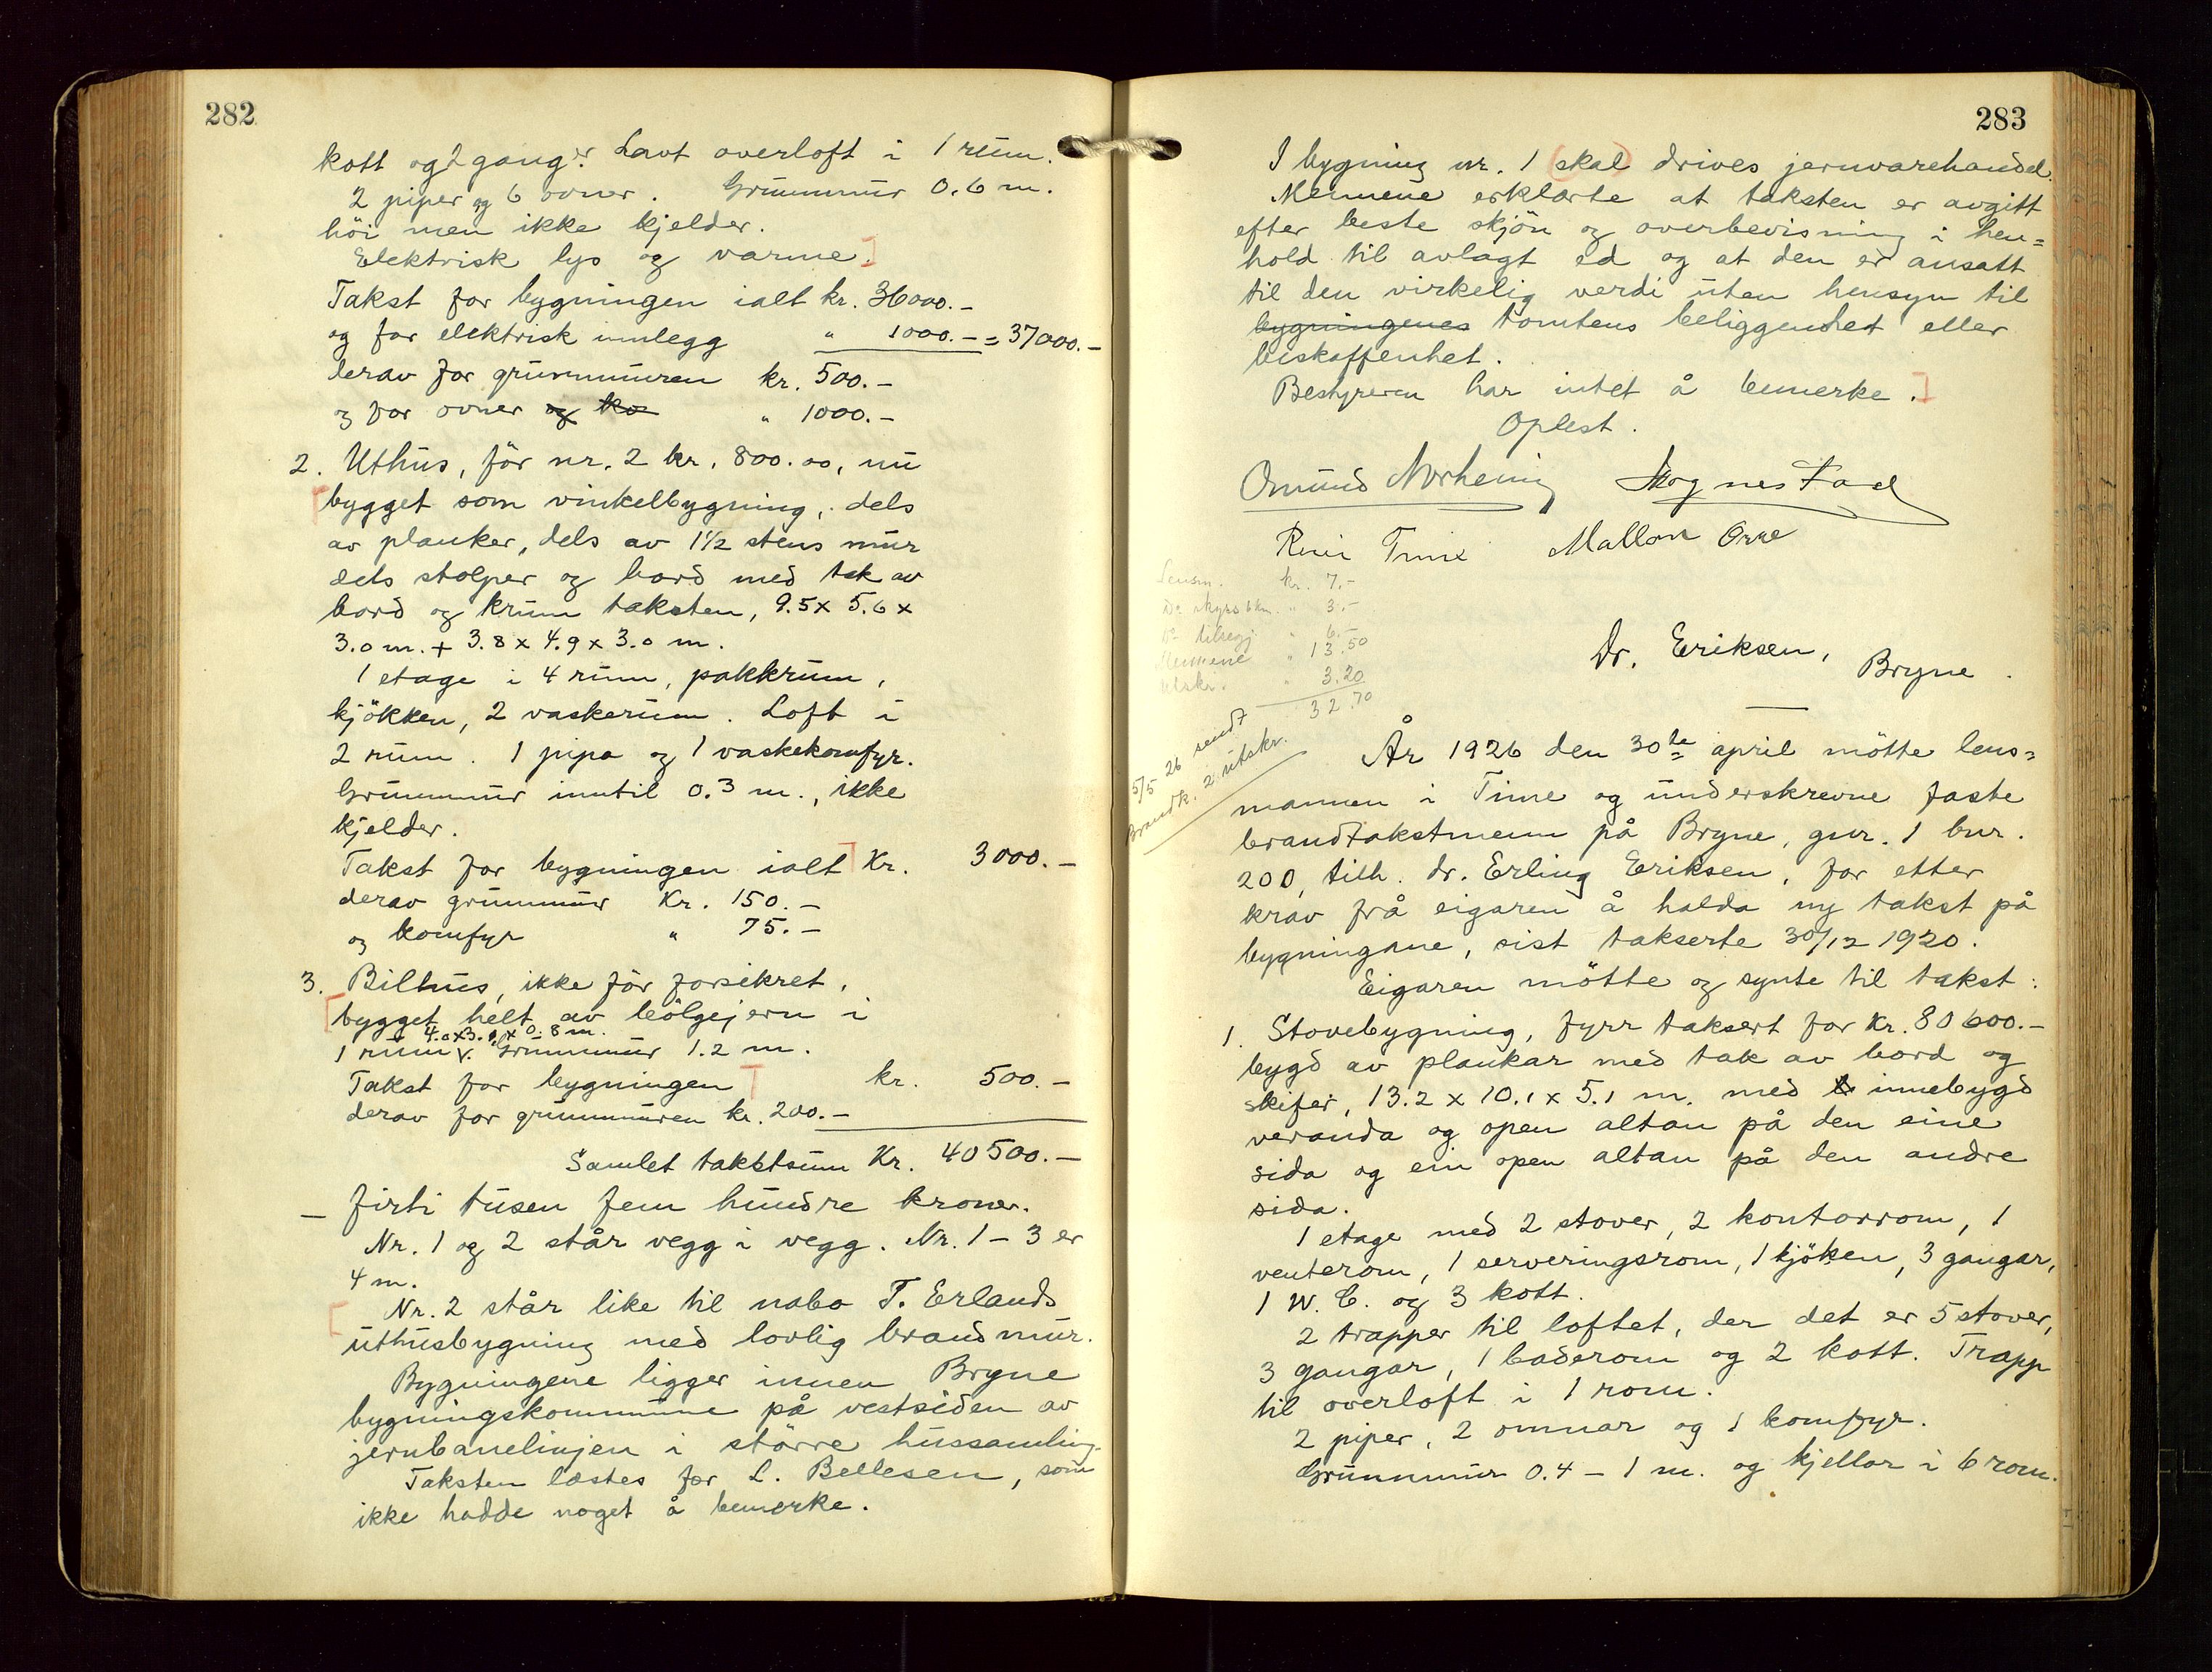 282
kott og 2 ganger. Lavt overloft i 1 rum.
2 piper og 6 ovner. Grunnmur 0.6 m.
höi men ikke kjelder.
Elektrisk lys og varme.
Takst for bygningen ialt kr. 36000.-
og for elektrisk innlegg " 1000.- = 37000.-
derav for grunnmuren kr. 500.-
og for ovner og ko " 1000.-
2. Uthus, för nr. 2 kr. 800.00, nu
bygget som vinkelbygning, dels
av planker, dels av 1½ stens mur
dels stolper og bord med tak av
bord og krum taksten, 9.5 x 5.6 x
3.0 m. + 3.8 x 4.9 x 3.0 m.
1 etage i 4 rum, pakkrum,
kjökken, 2 vaskerum. Loft i
2 rum. 1 pipa og 1 vaskekomfyr.
Grunnmur inntil 0.3 m., ikke
kjelder.
Takst for bygningen ialt Kr. 3000.-
derav grunnmur Kr. 150.-
og komfyr " 75.-
3. Bilhus, ikke för forsikret,
bygget helt av bölgejern i
4.0 x 3.0 x 0.8 m.
1 rum v. Grunnmur 1.2 m.
Takst for bygningen kr. 500.-
derav for grunnmuren kr. 200.-
Samlet takstsum Kr. 40500.-
- firti tusen fem hundre kroner.
Nr. 1 og 2 står vegg i vegg. Nr. 1 - 3 er
4 m.
Nr. 2 står like til nabo T. Erlands
uthusbygning med lovlig brandmur.
Bygningene ligger innen Bryne
bygningskommune på vestsiden av
jernbanelinjen i större hussamling.
Taksten læstes for L. Bellesen, som
ikke hadde noget å bemerke.
283
I bygning nr. 1 (skal) drives jernvarehandel.
Mennene erklærte at taksten er avgitt
efter beste skjön og overbevisning i hen=
hold til avlagt ed og at den er ansatt
til den virkelig verdi uten hensyn til
bygningenes tomtens beliggenhet eller
beskaffenhet.
Bestyreren har intet å bemerke.
Oplest.
Omund Norheim
Mallon Orre
Lensm. kr. 7.-
Do skyss 6 km. " 3.-
Do tilsegj. " 6.-
Mennene " 13.50
Utskr. " 3.20
32.70
5/5 26 sendt
Brandk. 2 utskr.
Dr. Eriksen,
Bryne.
År 1926 den 30te april mötte lens=
mannen i Time og underskrevne faste
brandtakstmenn på Bryne, gnr. 1 bnr.
200, tilh. dr. Erling Eriksen, for etter
krav frå eigaren å halda ny takst på
bygningane, sist takserte 30/12 1920.
Eigaren mötte og synte til takst:
1. Stovebygning, fyrr taksert for Kr. 80600.-
bygd av plankar med tak av bord og
skifer, 13.2 x 10.1 x 5.1 m. med b innebygd
veranda og open altan på den eine
sida og ein open altan på den andre
sida.
1 etage med 2 stover, 2 kontorrom, 1
venterom, 1 serveringsrom, 1 kjöken, 3 gangar,
1 W.C. og 3 kott.
2 trapper til loftet, der det er 5 stover,
3 gangar, 1 baderom og 2 kott. Trapp
til overloft i 1 rom.
2 piper, 2 omnar og 1 komfyr.
Grunnmur 0.4 - 1 m. og kjellar i 6 rom.